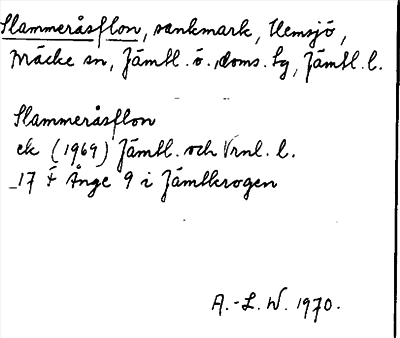 Slammeråsflon, sankmark, Hemsjö,
Bräcke sn, Jämtl. ö. doms. sg, Jämtl. l.
Slammeråsflon
ek (1969) Jämtl. och Vrnl. l.
17 F Ånge 9 i Jämtkrogen
A.-L. W. 1970.